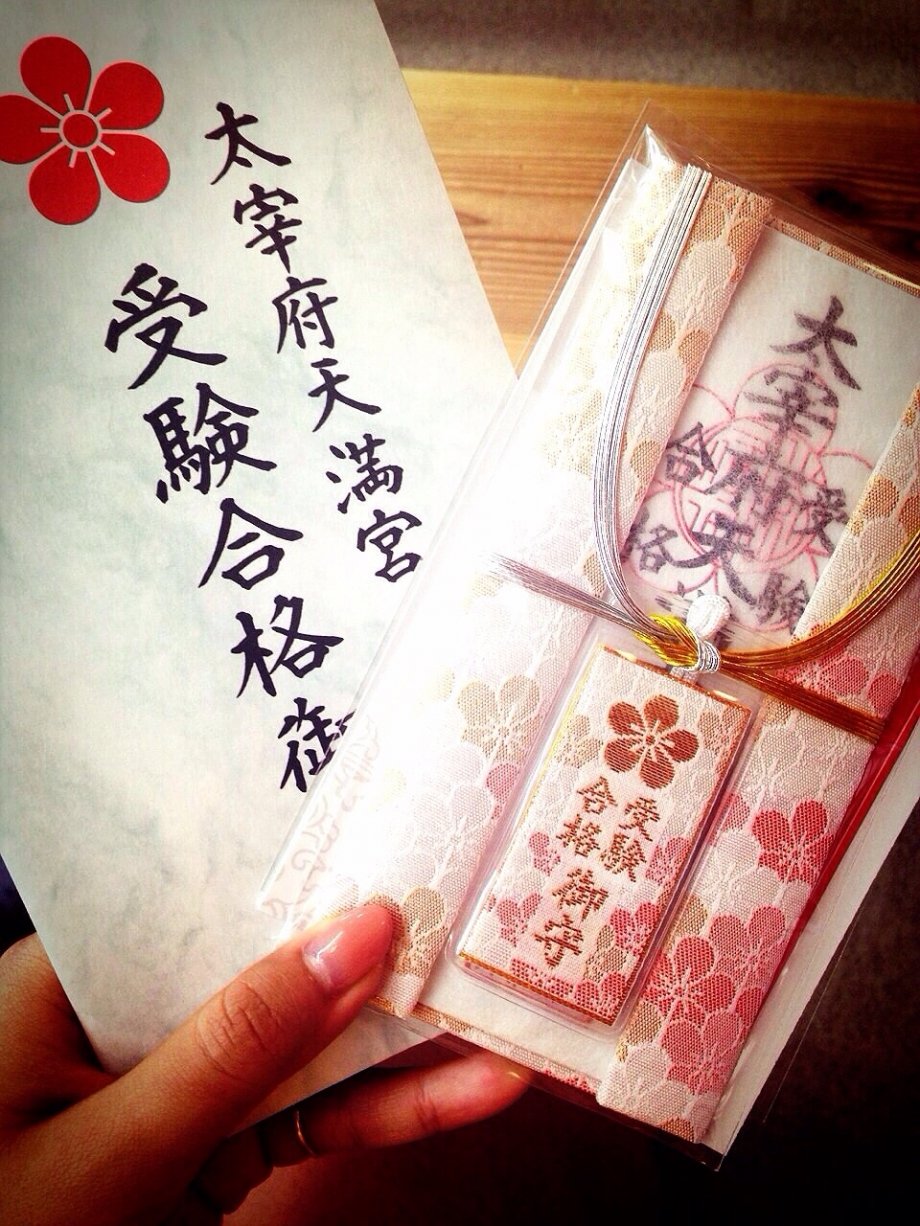 太宰府天満宮
受験合格御
太宰府天
受験
合格
受験
合格
御守